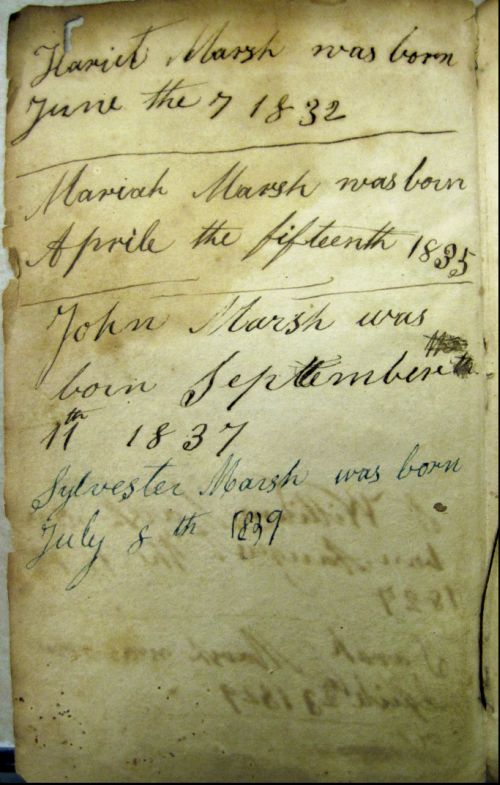 Hariet Marsh was born
June the 7 1832
Mariah Marsh was born
Aprile the fifteenth 1835
John Marsh was
born September
11th 1837
Sylvester Marsh was born
July 8th 1839
1827
Sarah Marsh was